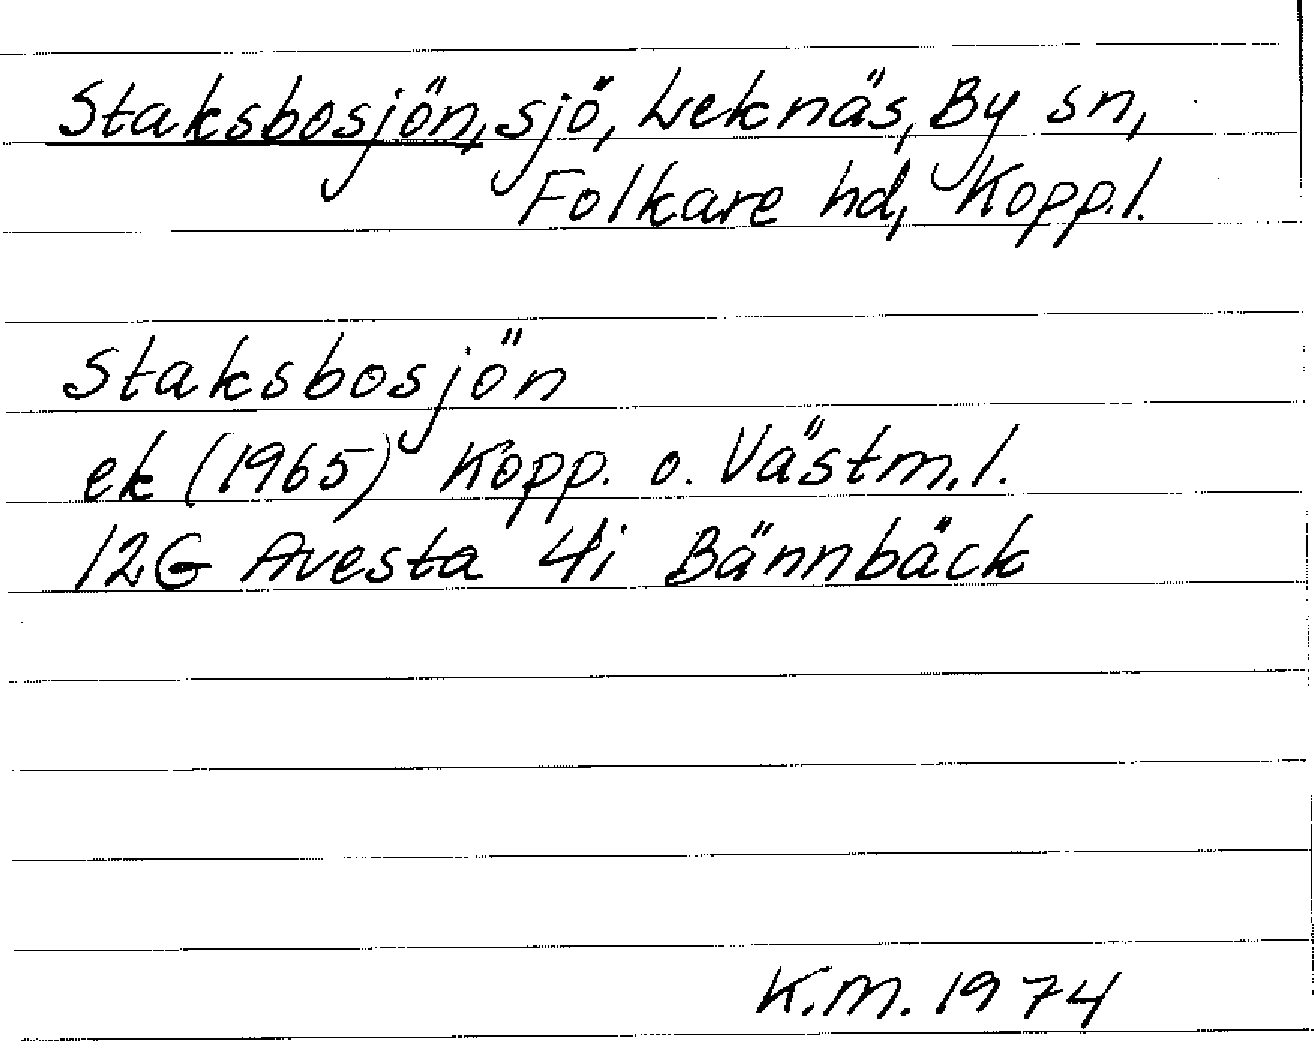 Staksbosjön, sjö, Leknäs, By sn,
Folkare hd, Kopp.l.
Staksbosjön
ek (1965) Kopp. o. Västm.l.
12G Avesta 4i Bännbäck
K.M. 1974